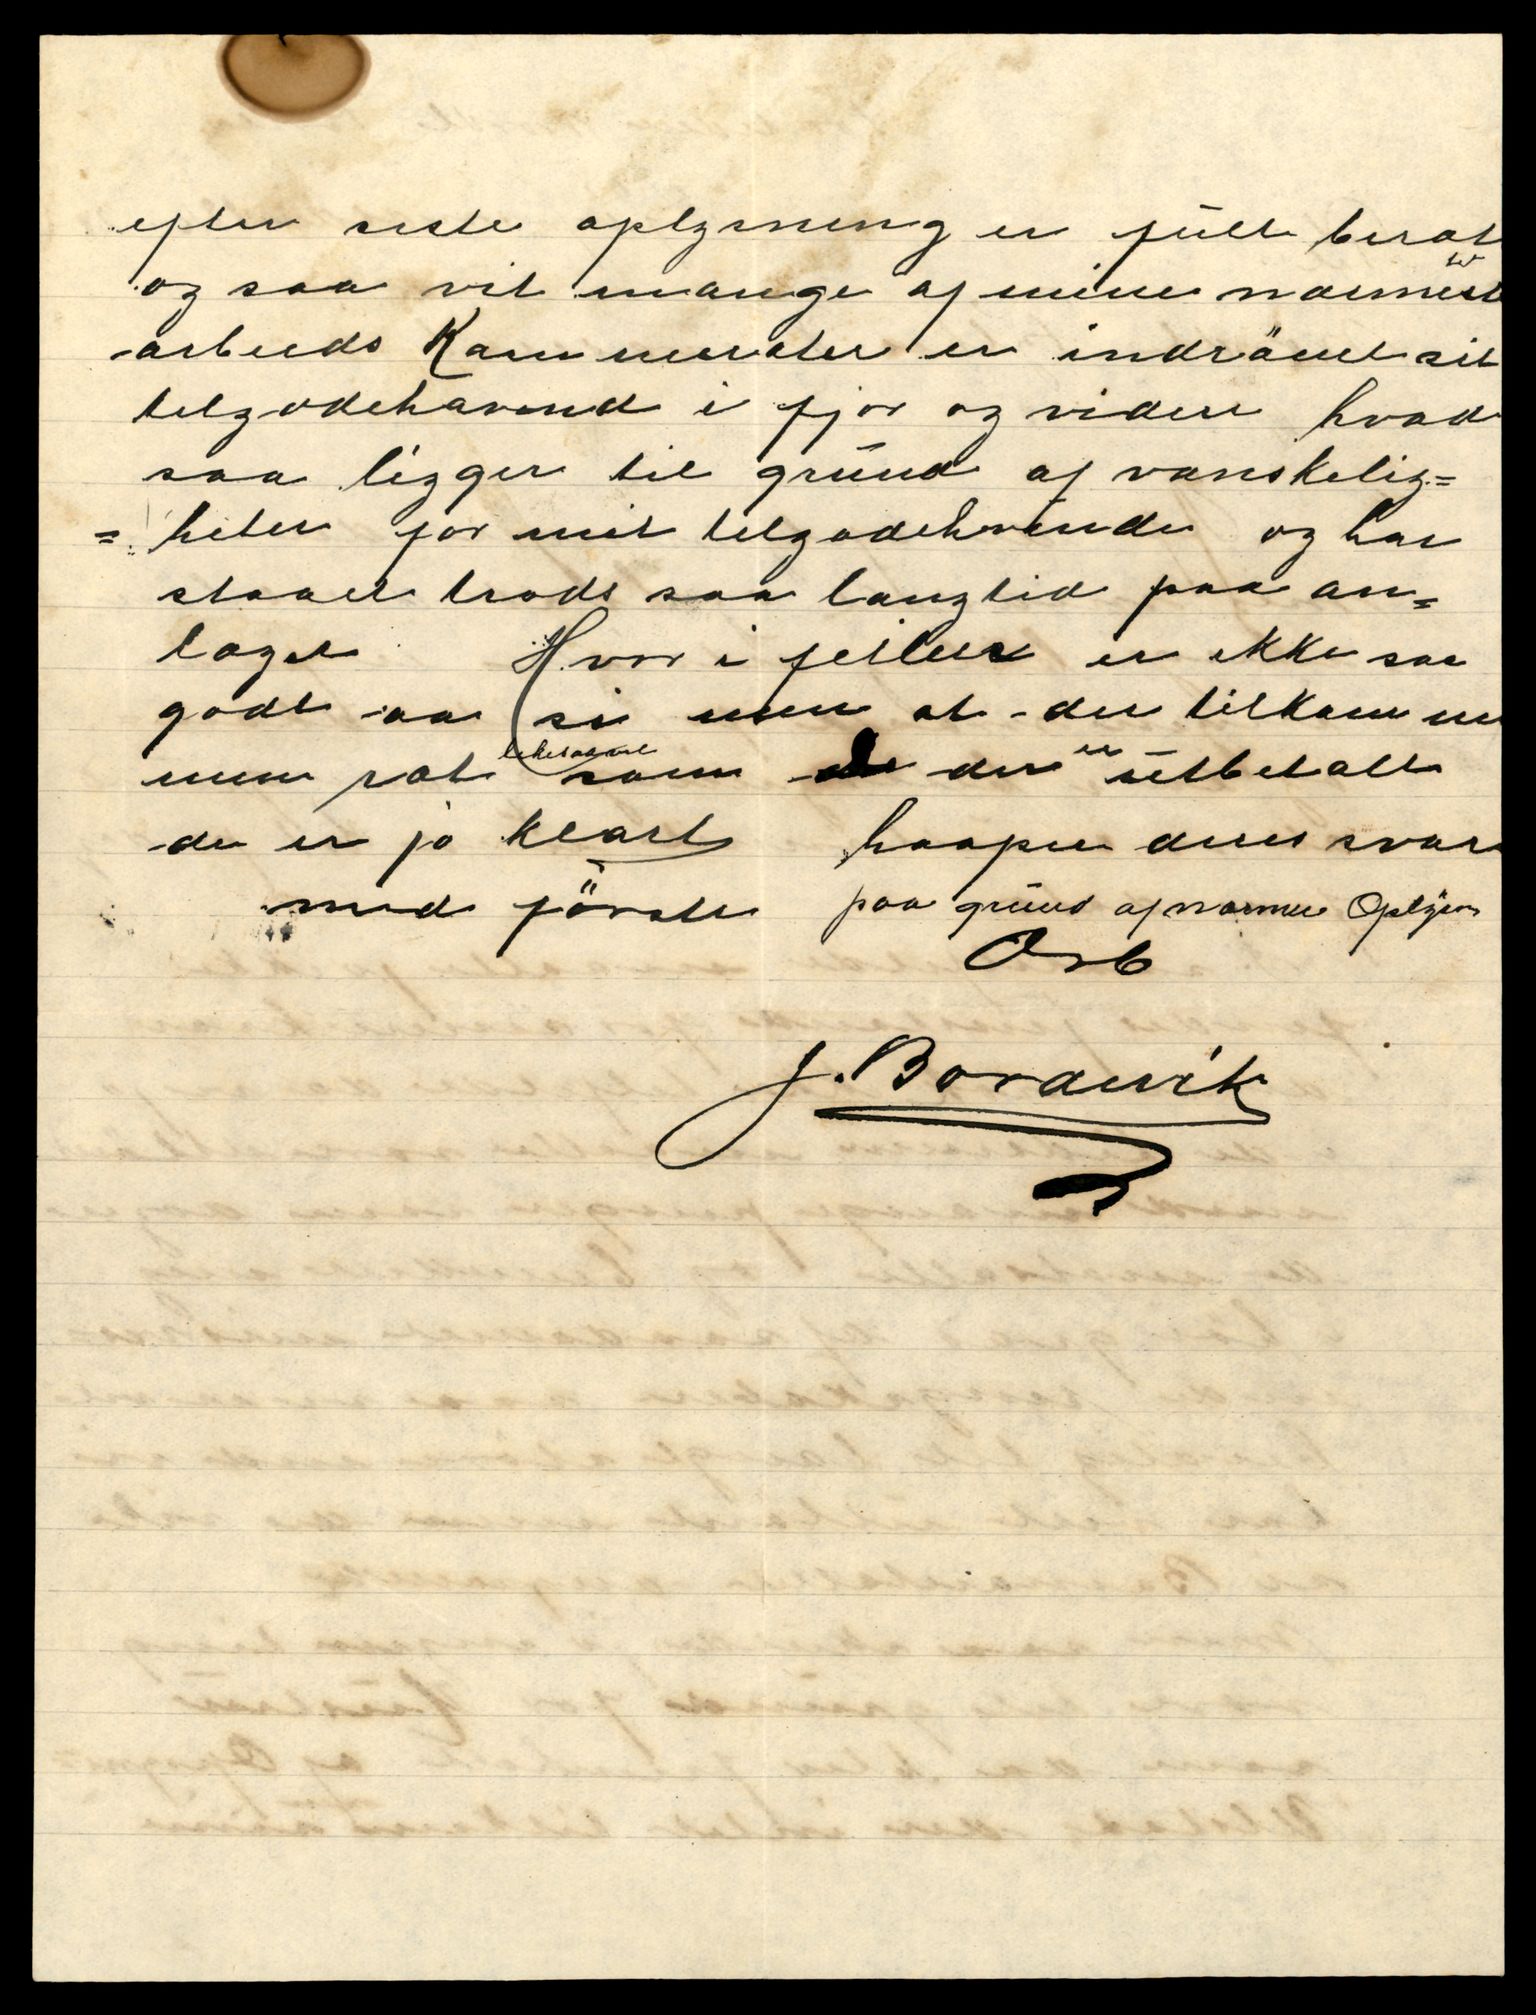 efter siste oplysning er fült berat
og saa vit mange af mine nærmeste
arbeids Kammerater er indrömet sit
telgodehavend i fjor og videre hvad
saa ligger til gründ af vanskelig=
= heter for mit telgodehvende og har
staaet trods saa langtid paa an=
laget Hvor i feilen er ikke saa
godt aa si men at der tilkommer
men rat likesaavel som der er ütbetalt
de er jo klart haaper deres svar
med förste paa gründ af nærmere Oplys
Ærb
J. Bordervik